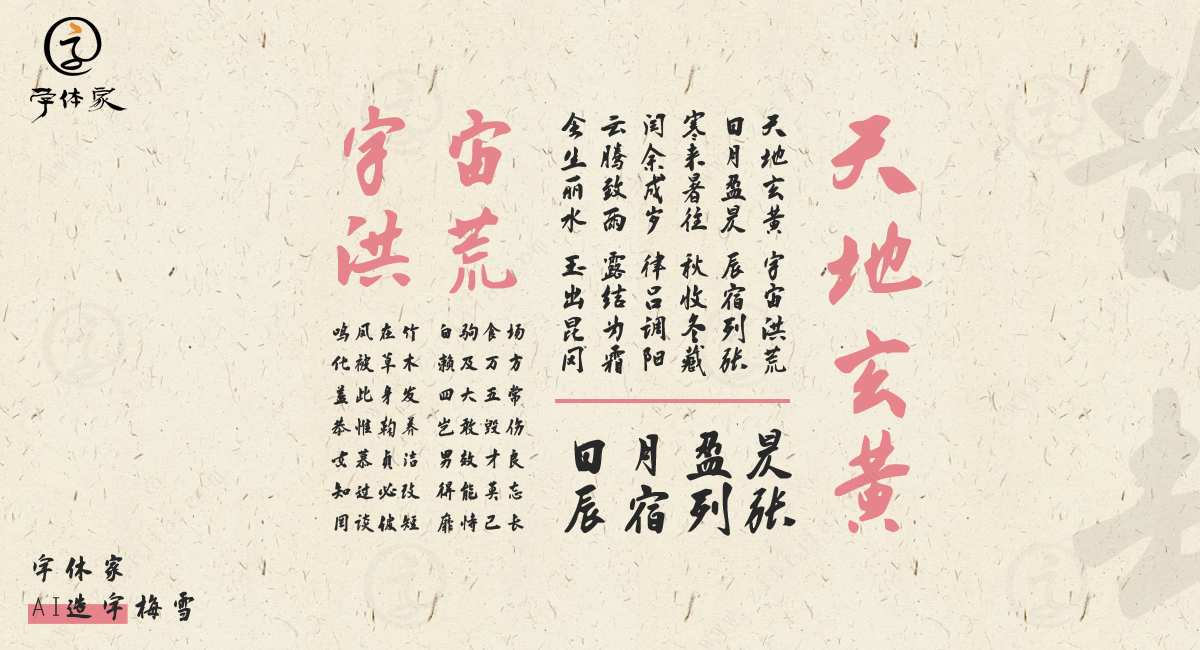 字体家
天地玄黄
天地玄黄 宇宙洪荒
日月盈昃 辰宿列张
寒来暑往 秋收冬藏
闰余成岁 律吕调阳
云腾致雨 露结为霜
金生丽水 玉出昆冈
日月盈昃
辰宿列张
宇宙
洪荒
鸣凤在竹 白驹食场
化被草木 赖及万方
盖此身发 四大五常
恭惟鞠养 岂敢毁伤
女慕贞洁 男效才良
知过必改 得能莫忘
罔谈彼短 靡恃己长
字体家
AI造字梅雪